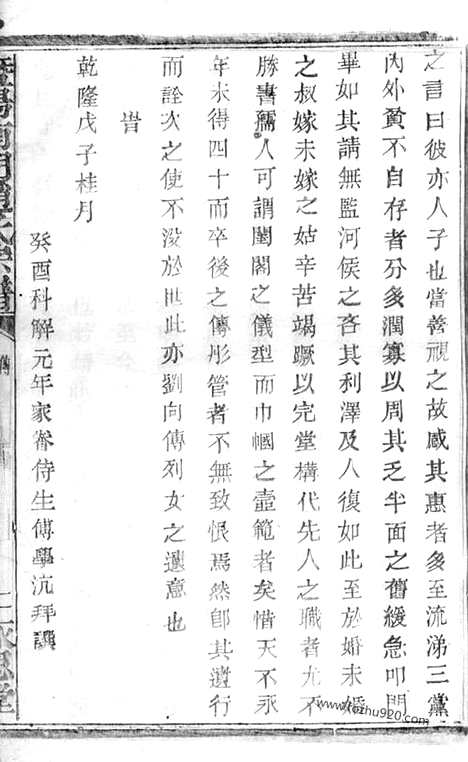 之言曰彼亦人子也當善視之故感其惠者多至流涕三黨
內外貧不自存者分多潤寡以周其乏半面之舊緩急叩門
畢如其請無監河侯之吝其利澤及人復如此至於婚未婚
之叔嫁未嫁之姑辛苦竭蹶以完堂構代先人之職者尤不
勝書孺人可謂閨閣之儀型而巾幗之壼範者矣惜天不永
年未得四十而卒後之傳彤管者不無致恨焉然卽其遺行
而詮次之使不没於世此亦劉向傳列女之遺意也
旹
乾隆戊子桂月
癸酉科解元年家眷侍生傅學沆拜譔
www.tozhu920.com